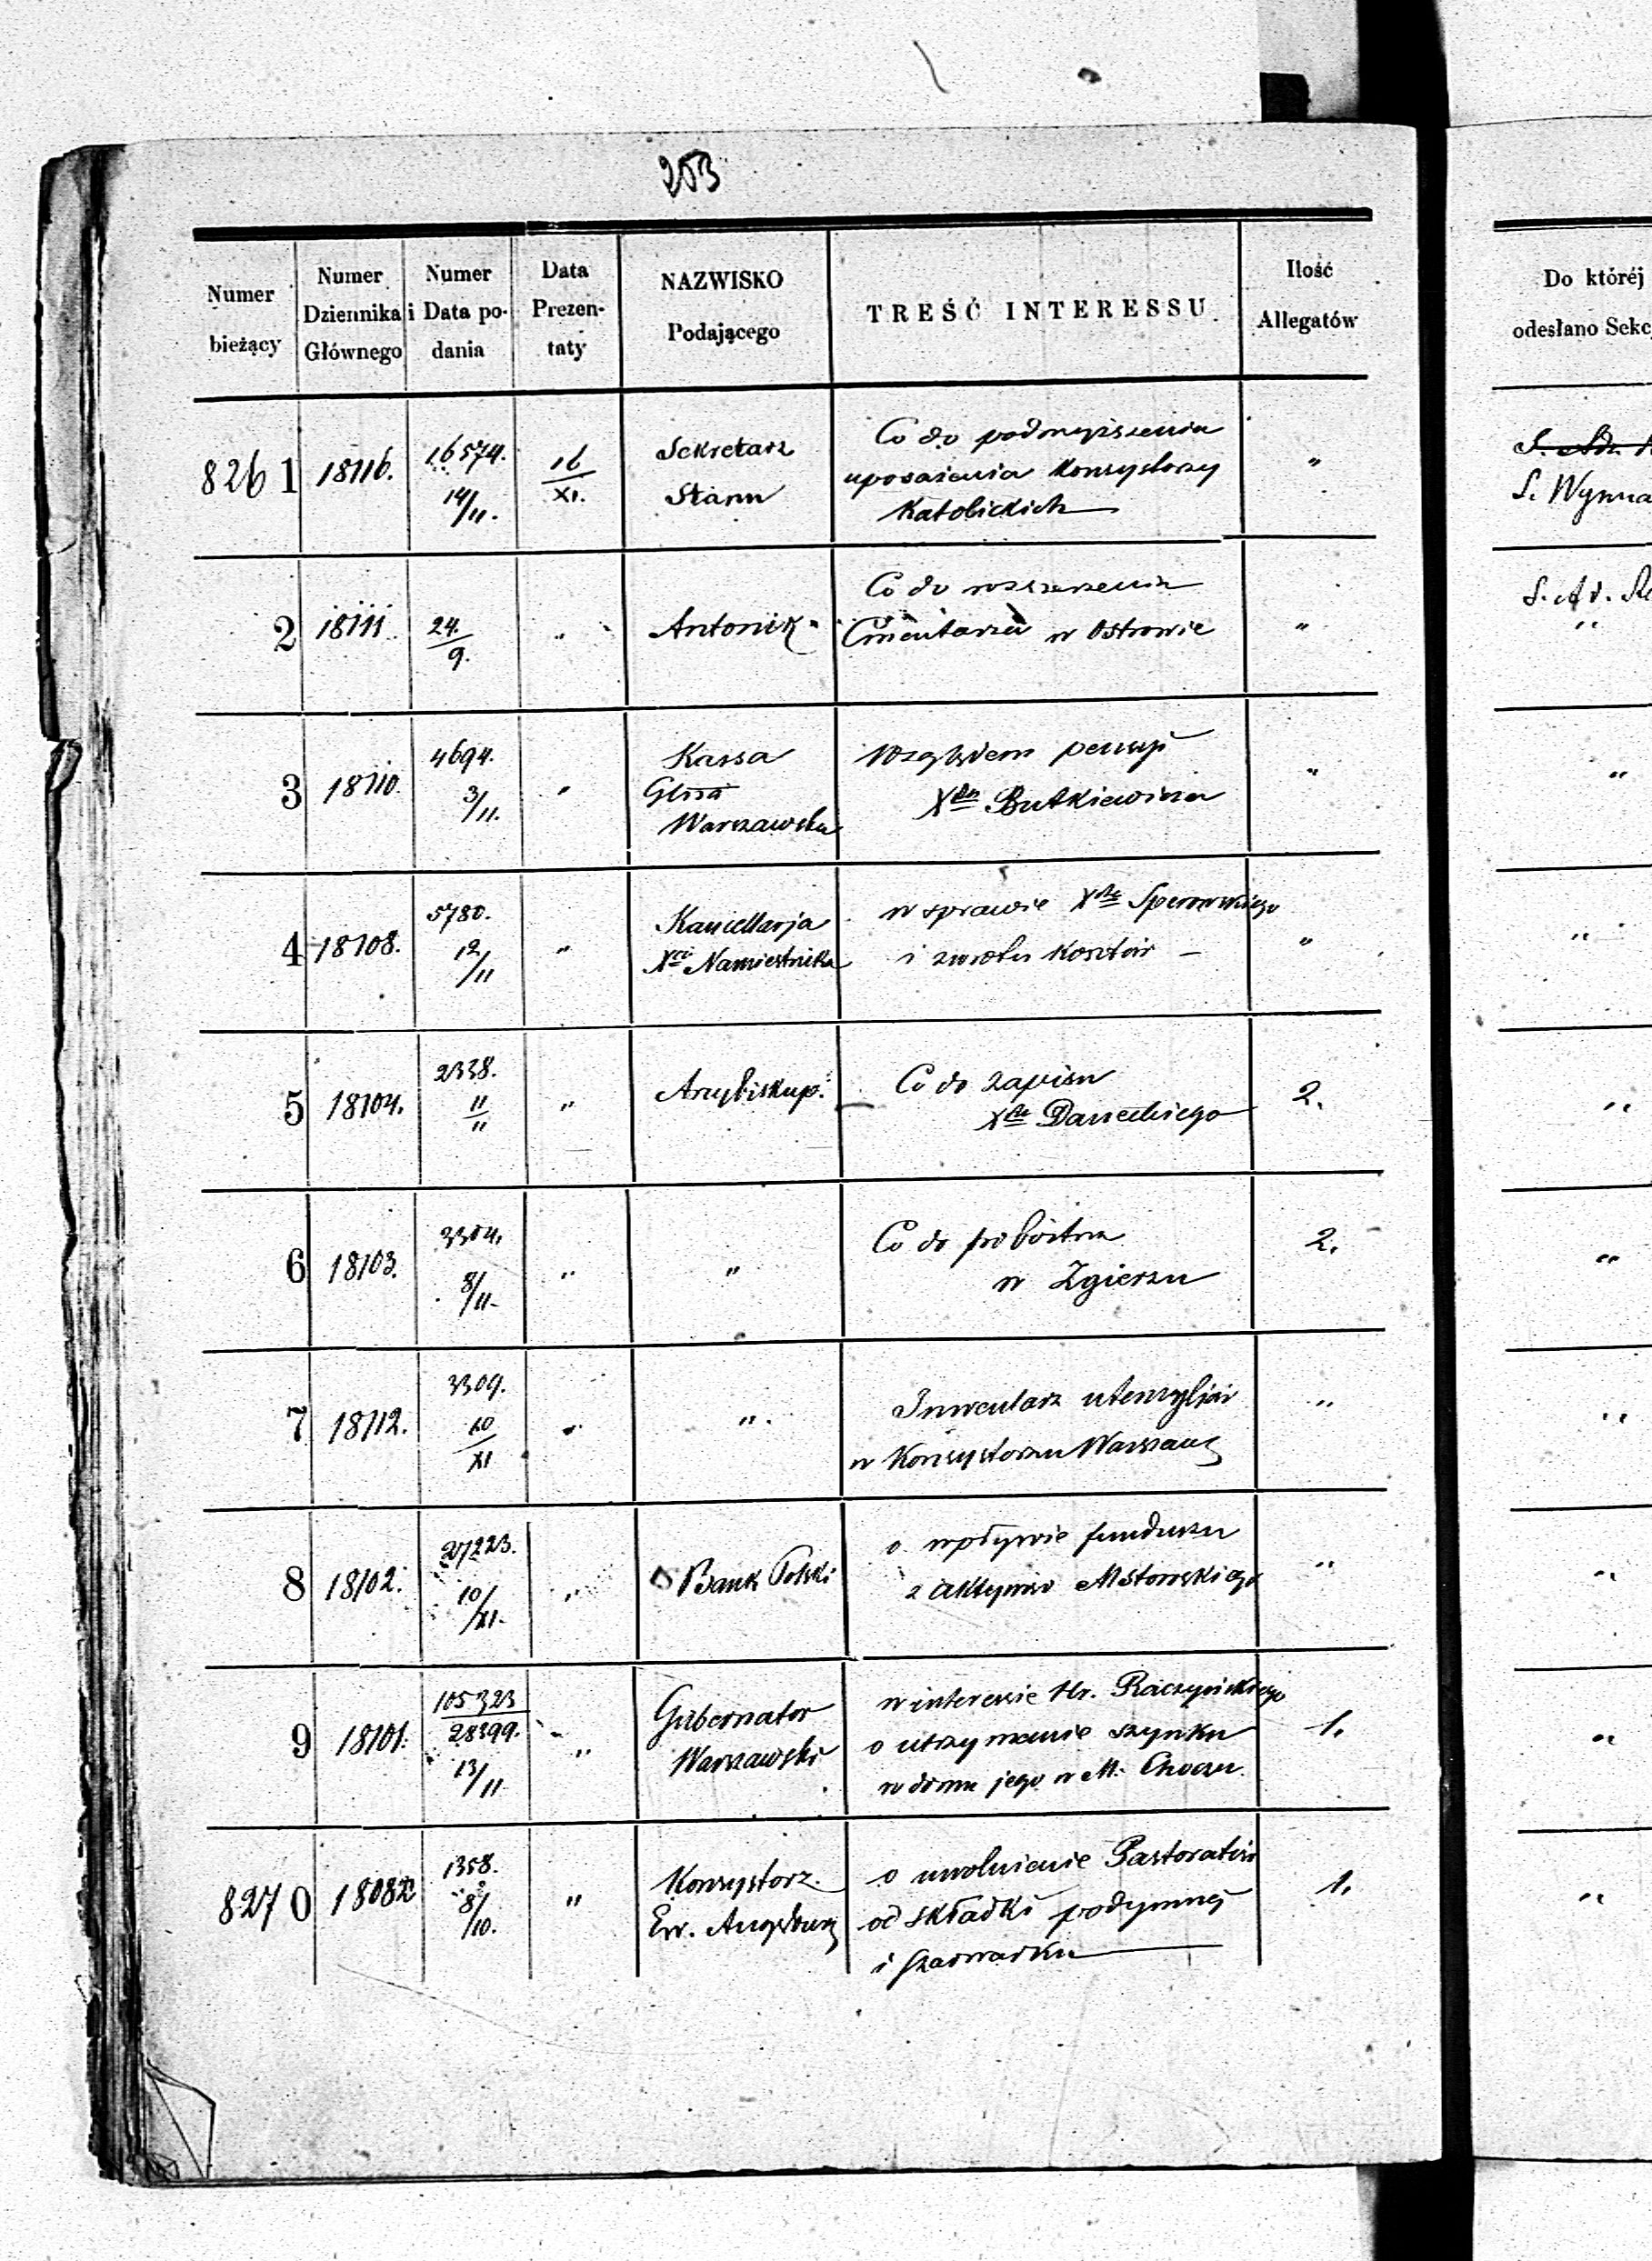 203
Numer bieżący
Numer Dziennika Głównego
Numer i Data podania
Data Prezentaty
NAZWISKO Podającego
TREŚĆ INTERESSU
Ilość Allegatów
Do któréj odesłano Sekc
8261 18116. 16574. 14/11. 16/XI. Sekretarz Stanu
Co do podwyższenia
uposażenia Konsystorzy
Katolickich
"
S. Wyzna
2 18111 24./9. " Antonik
Co do rozszerzenia
Cmentarza w Ostrowie
"
3 18110. 4694. 3/11. " Kassa Głna Warszawska
Względem pensyi
Xdza Butkiewicza
"
4 18108. 5780. 12/11 " Kancellarja Xcia Namiestnika
w sprawie Xdza
i zwrotu kosztów
"
5 18104. 2338. 11/11 " Arcybiskup.
Co do zapisu
Xdza Daneckiego
2.
6 18103. 3304. 8/11. " "
Co do probostwa
w Zgierzu
2.
7 18112. 3309. 10/XI " "
Inwentarz utensyljów
w Konsystorzu Warszaws
"
8 18102. 27223. 10/XI. " Bank Polski
o wpływie funduszu
z aktywów Mstowskiego
"
9 18101. 105323/28399. 13/11 " Gubernator Warszawski
w interessie Hr. Raczyńskiego
o utrzymanie szynku
w domu jego w M. Choczu
1.
8270 18082 1358. 8/10. " Konsystorz Ew. Augsburg
o uwolnienie Pastoratów
od składki podymnej
i szarwarku
1.